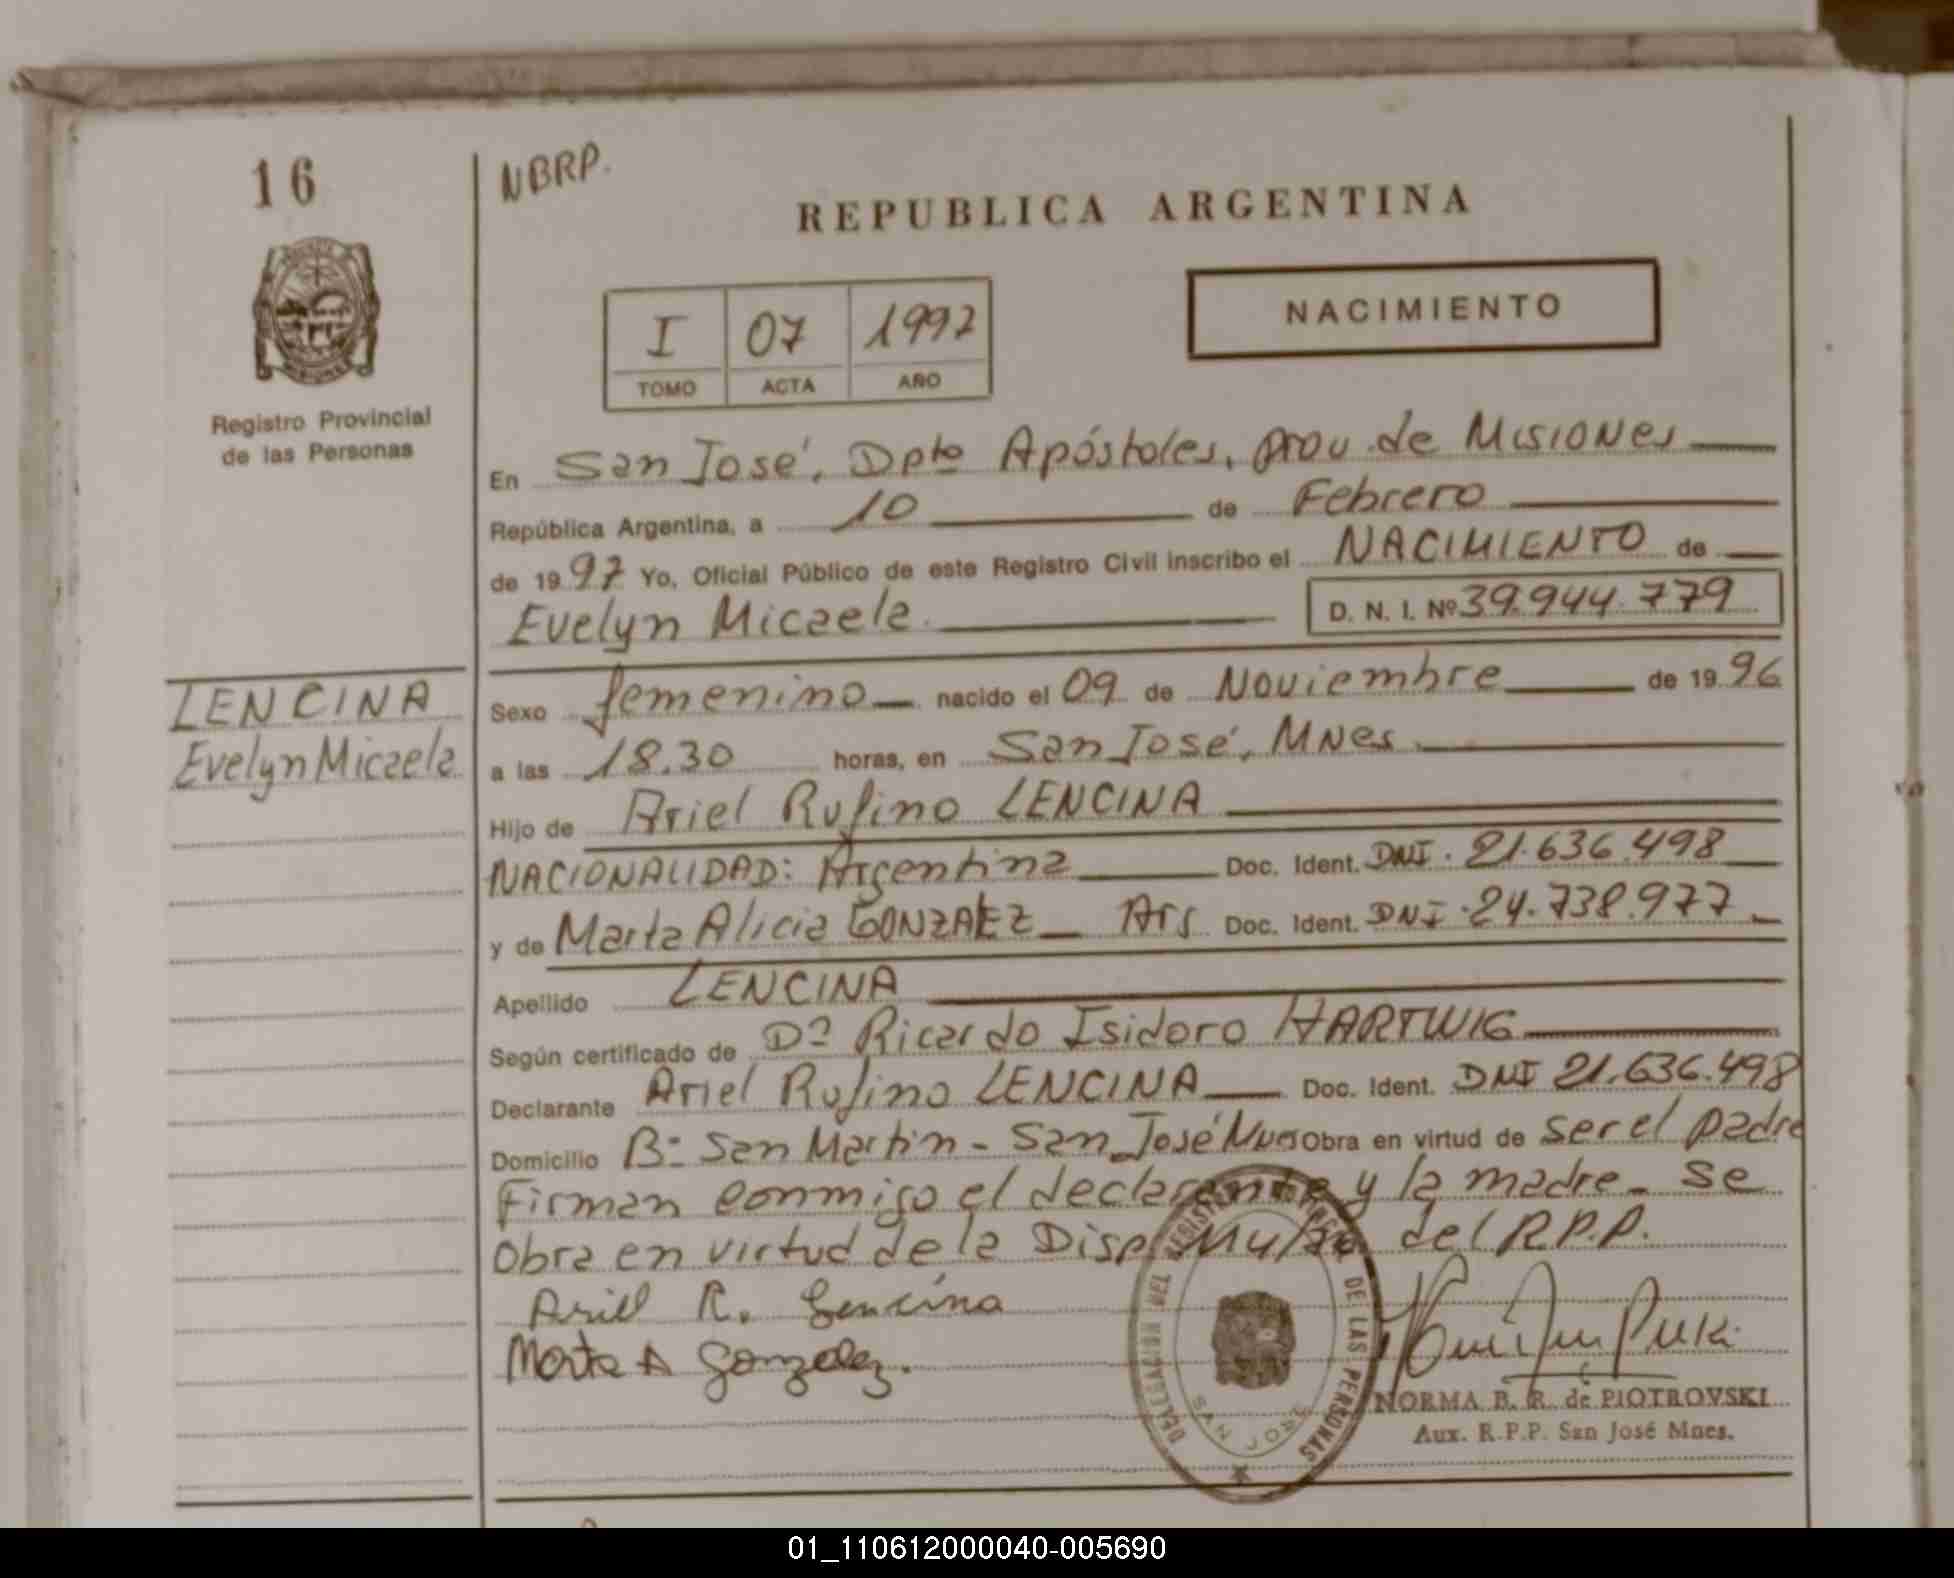 16
NBRP.
REPUBLICA ARGENTINA
MISIONES
Registro Provincial
de las Personas
I 07 1997
TOMO ACTA AÑO
NACIMIENTO
En San José, Dpto Apóstoles, prov. de Misiones
República Argentina, a 10 de Febrero
de 1997 Yo, Oficial Público de este Registro Civil inscribo el NACIMIENTO de
Evelyn Micaela. D. N. I. Nº 39.944.779
LENCINA
Evelyn Micaela
Sexo femenino nacido el 09 de Noviembre de 1996
a las 18.30 horas, en San José, Mnes.
Hijo de Ariel Rufino LENCINA
NACIONALIDAD: Argentina Doc. Ident. DNI. 21.636.498
y de Marta Alicia GONZALEZ Arg Doc. Ident. DNI. 24.738.977
Apellido LENCINA
Según certificado de Dº Ricardo Isidoro HARTWIG
Declarante Ariel Rufino LENCINA Doc. Ident. DNI 21.636.498
Domicilio Bº San Martin - San José Obra en virtud de ser el padre
Firman conmigo el declarante y la madre - Se
Obra en virtud de la Disp del R.P.P.
Ariel R. Lencina
Marta A Gonzalez.
DELEGACION DEL REGISTRO DE LAS PERSONAS
SAN JOSE
NORMA B. R. de PIOTROVSKI
Aux. R.P.P. San José Mnes.
01_110612000040-005690